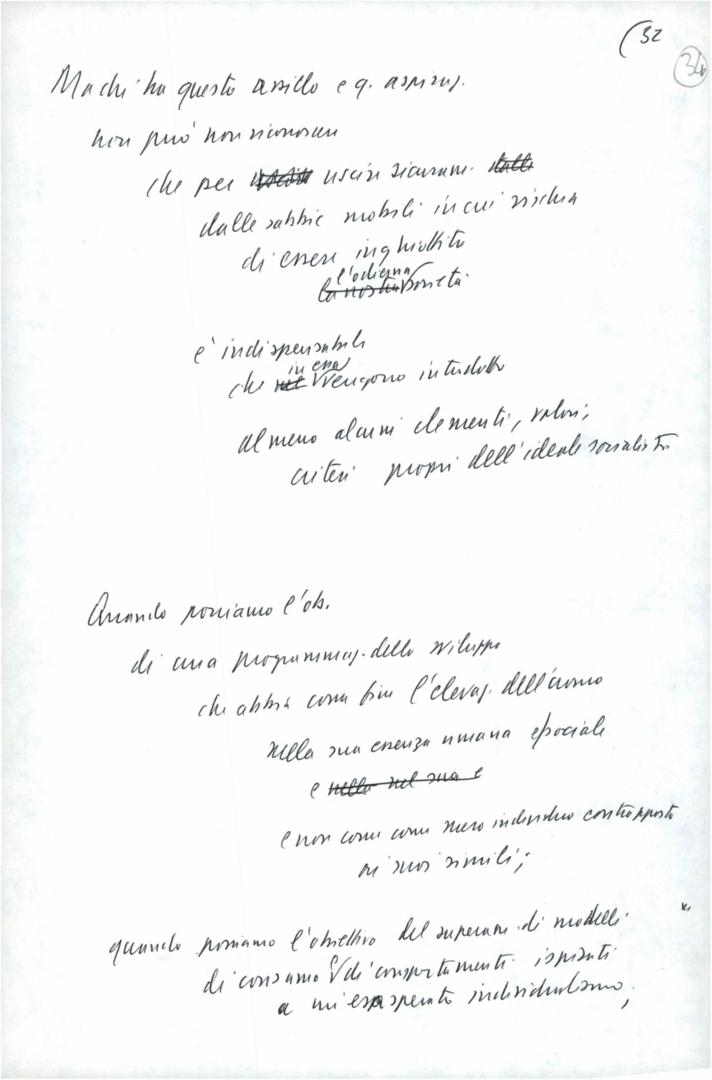 (32
34
Ma chi ha questo assillo e q. aspiraz.
non può non riconoscere
che per uscire sicuram. dalle
dalle sabbie mobili in cui rischia
di essere inghiottita
l'odierna
la nostra società
è indispensabile
in essa
che nel vengono introdotti
almeno alcuni elementi, valori,
criteri propri dell'ideale socialista
Quando poniamo l'ob.
di una programmaz. dello sviluppo
che abbia come fine l'elevaz. dell'uomo
nella sua essenza umana e sociale
e nella nel sua e
e non come come mero individuo contrapposto
ai suoi simili;
quando poniamo l'obiettivo del superam. di modelli
di consumo e di comportamenti ispirati
a un'esasperato individualismo,